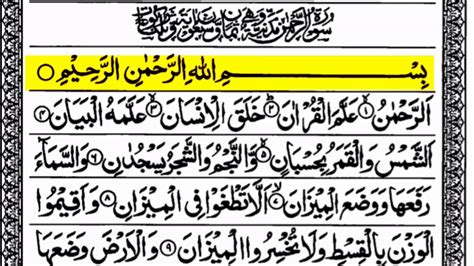 سورة الرحمن مدنية وهي ثمان وسبعون آية وثلاث ركوعات
بِسْمِ اللهِ الرَّحْمٰنِ الرَّحِيْمِ ○
اَلرَّحْمٰنُ ۙ﴿۱﴾ عَلَّمَ الْقُرْاٰنَ ؕ﴿۲﴾ خَلَقَ الْاِنْسَانَ ۙ﴿۳﴾ عَلَّمَهُ الْبَيَانَ ﴿۴﴾
اَلشَّمْسُ وَالْقَمَرُ بِحُسْبَانٍ ﴿۵﴾ وَّالنَّجْمُ وَالشَّجَرُ يَسْجُدٰنِ ﴿۶﴾ وَالسَّمَآءَ
رَفَعَهَا وَوَضَعَ الْمِيْزَانَ ۙ﴿۷﴾ اَلَّا تَطْغَوْا فِي الْمِيْزَانِ ﴿۸﴾ وَاَقِيْمُوا
الْوَزْنَ بِالْقِسْطِ وَلَا تُخْسِرُوا الْمِيْزَانَ ﴿۹﴾ وَالْاَرْضَ وَضَعَهَا